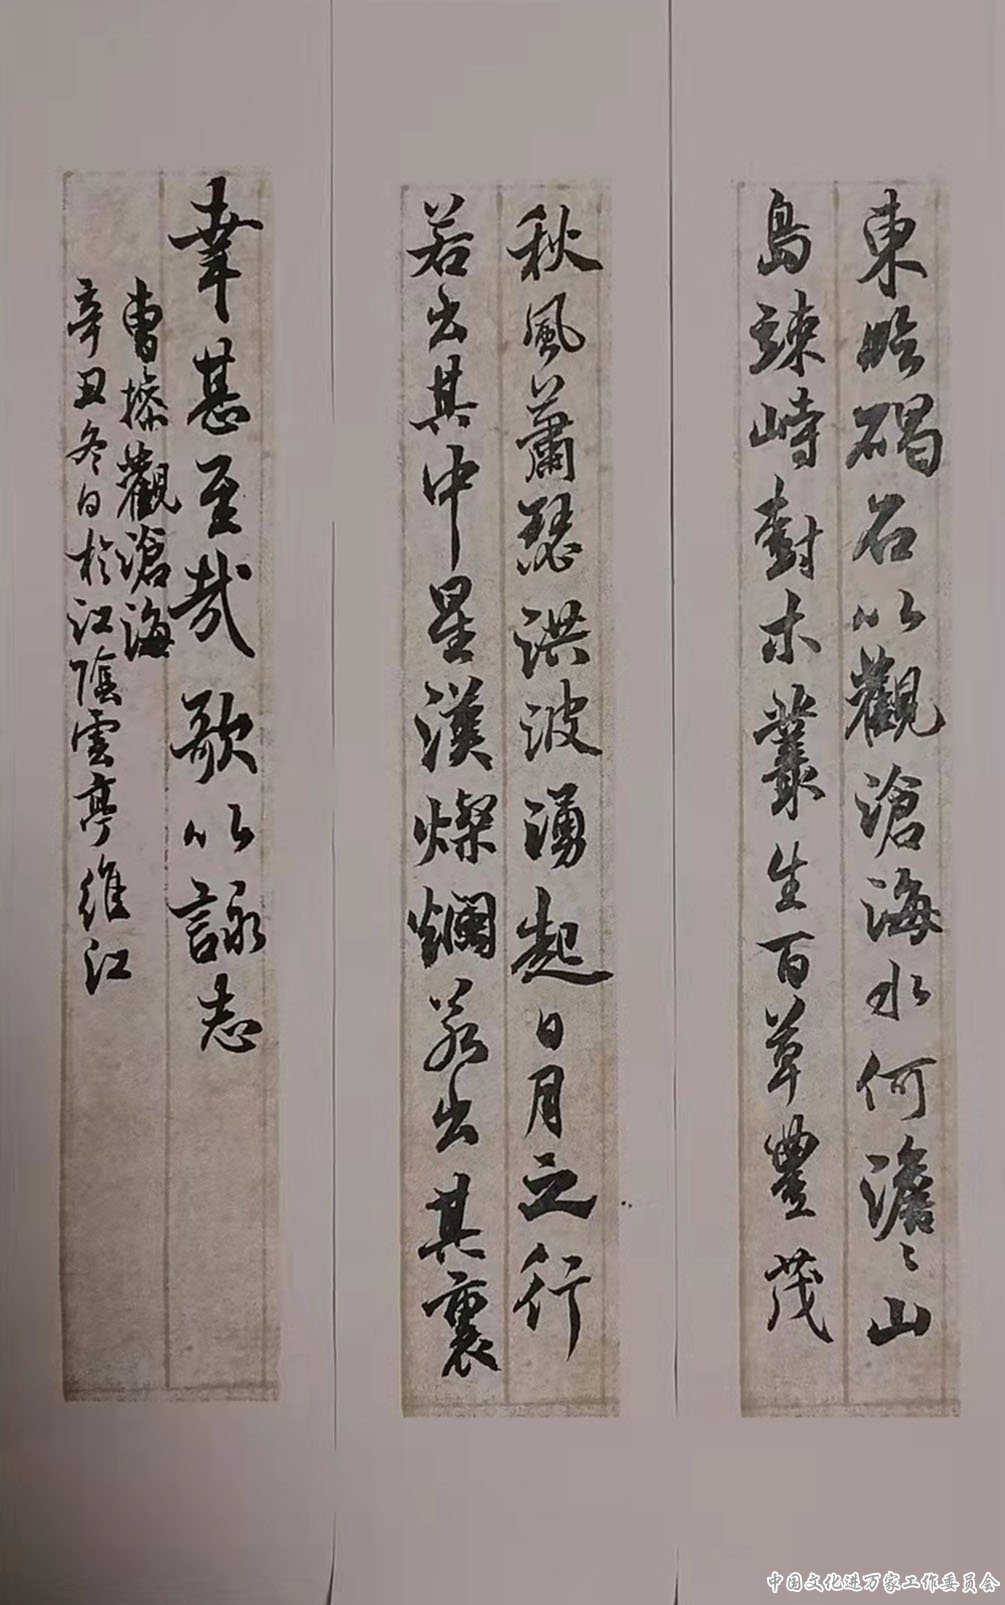 東臨碣石以觀滄海水何澹〻山
島竦峙對木叢生百草豐茂
秋風蕭瑟洪波湧起日月之行
若出其中星漢燦爛若出其裏
幸甚至哉歌以詠志
曹操觀滄海
辛丑冬日於江陰雲亭維江
中国文化进万家工作委员会